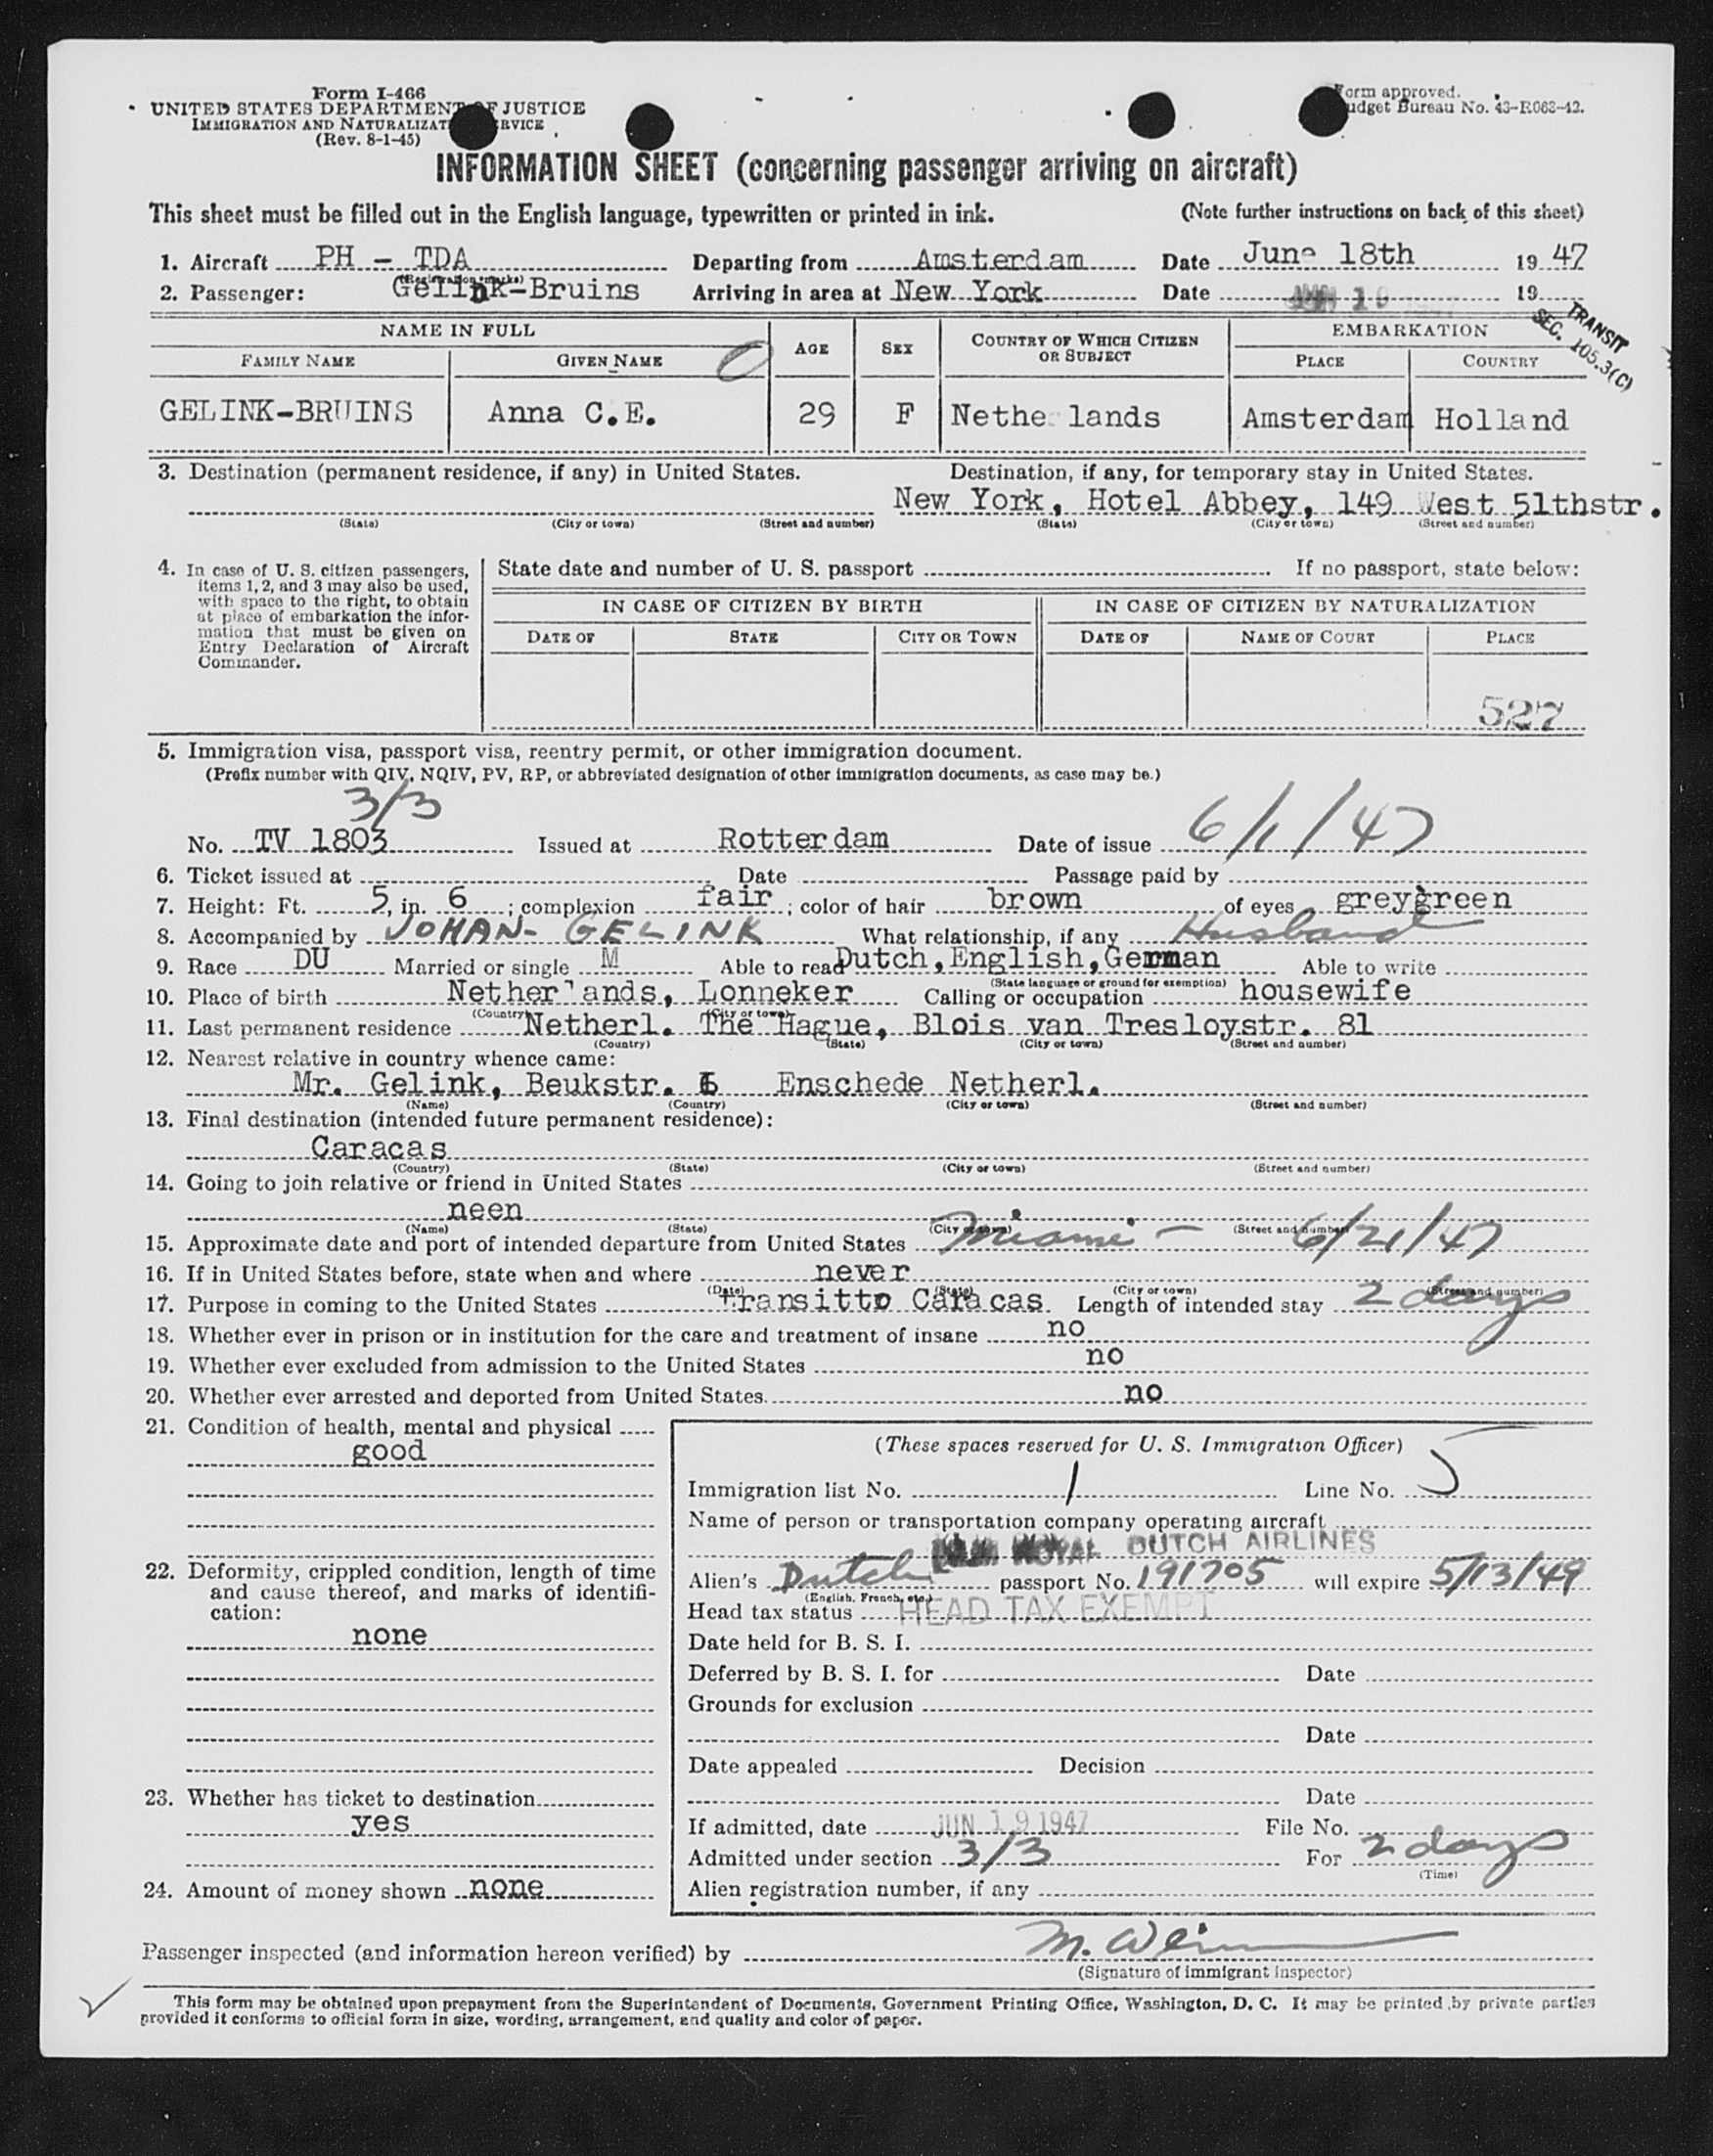 Form I-466
UNITED STATES DEPARTMENT OF JUSTICE
IMMIGRATION AND NATURALIZATION SERVICE
(Rev. 8-1-45)
Form approved.
Budget Bureau No. 43-R063-42.
INFORMATION SHEET (concerning passenger arriving on aircraft)
This sheet must be filled out in the English language, typewritten or printed in ink. (Note further instructions on back of this sheet)
1. Aircraft PH - TDA Departing from Amsterdam Date June 18th 19 47
(Registration marks)
2. Passenger: Gelink-Bruins Arriving in area at New York Date 19
TRANSIT
SEC. 105.3(C)
NAME IN FULL AGE SEX COUNTRY OF WHICH CITIZEN OR SUBJECT EMBARKATION
FAMILY NAME GIVEN NAME PLACE COUNTRY
GELINK-BRUINS Anna C.E. 29 F Nethe lands Amsterdam Holland
3. Destination (permanent residence, if any) in United States. Destination, if any, for temporary stay in United States.
New York, Hotel Abbey, 149 West 51thstr.
(State) (City or town) (Street and number) (State) (City or town) (Street and number)
4. In case of U. S. citizen passengers, items 1, 2, and 3 may also be used, with space to the right, to obtain at place of embarkation the information that must be given on Entry Declaration of Aircraft Commander.
State date and number of U. S. passport If no passport, state below:
IN CASE OF CITIZEN BY BIRTH IN CASE OF CITIZEN BY NATURALIZATION
DATE OF STATE CITY OR TOWN DATE OF NAME OF COURT PLACE
527
5. Immigration visa, passport visa, reentry permit, or other immigration document.
(Prefix number with QIV, NQIV, PV, RP, or abbreviated designation of other immigration documents, as case may be.)
3/3
No. TV 1803 Issued at Rotterdam Date of issue 6/1/47
6. Ticket issued at Date Passage paid by
7. Height: Ft. 5, in. 6; complexion fair; color of hair brown of eyes greygreen
8. Accompanied by JOHAN- GELINK What relationship, if any Husband
9. Race DU Married or single M Able to read Dutch, English, German Able to write
(State language or ground for exemption)
10. Place of birth Nether ands, Lonneker Calling or occupation housewife
(Country) (City or town)
11. Last permanent residence Netherl. The Hague, Blois van Tresloystr. 81
(Country) (State) (City or town) (Street and number)
12. Nearest relative in country whence came:
Mr. Gelink, Beukstr. 6 Enschede Netherl.
(Name) (Country) (City or town) (Street and number)
13. Final destination (intended future permanent residence):
Caracas
(Country) (State) (City or town) (Street and number)
14. Going to join relative or friend in United States
neen
(Name) (State) (City or town) (Street and number)
15. Approximate date and port of intended departure from United States Miami - 6/21/47
16. If in United States before, state when and where never
(Date) (State) (City or town) (Street and number)
17. Purpose in coming to the United States transitto Caracas Length of intended stay 2 days
18. Whether ever in prison or in institution for the care and treatment of insane no
19. Whether ever excluded from admission to the United States no
20. Whether ever arrested and deported from United States no
21. Condition of health, mental and physical
good
22. Deformity, crippled condition, length of time and cause thereof, and marks of identification:
none
23. Whether has ticket to destination
yes
24. Amount of money shown none
(These spaces reserved for U. S. Immigration Officer)
Immigration list No. 1 Line No. 5
Name of person or transportation company operating aircraft
ROYAL DUTCH AIRLINES
Alien's Dutch passport No. 191705 will expire 5/13/49
(English, French, etc.)
Head tax status HEAD TAX EXEMPT
Date held for B. S. I.
Deferred by B. S. I. for Date
Grounds for exclusion
Date
Date appealed Decision
Date
If admitted, date JUN 19 1947 File No.
Admitted under section 3/3 For 2 days
(Time)
Alien registration number, if any
Passenger inspected (and information hereon verified) by
(Signature of immigrant inspector)
This form may be obtained upon prepayment from the Superintendent of Documents, Government Printing Office, Washington, D. C. It may be printed by private parties
provided it conforms to official form in size, wording, arrangement, and quality and color of paper.